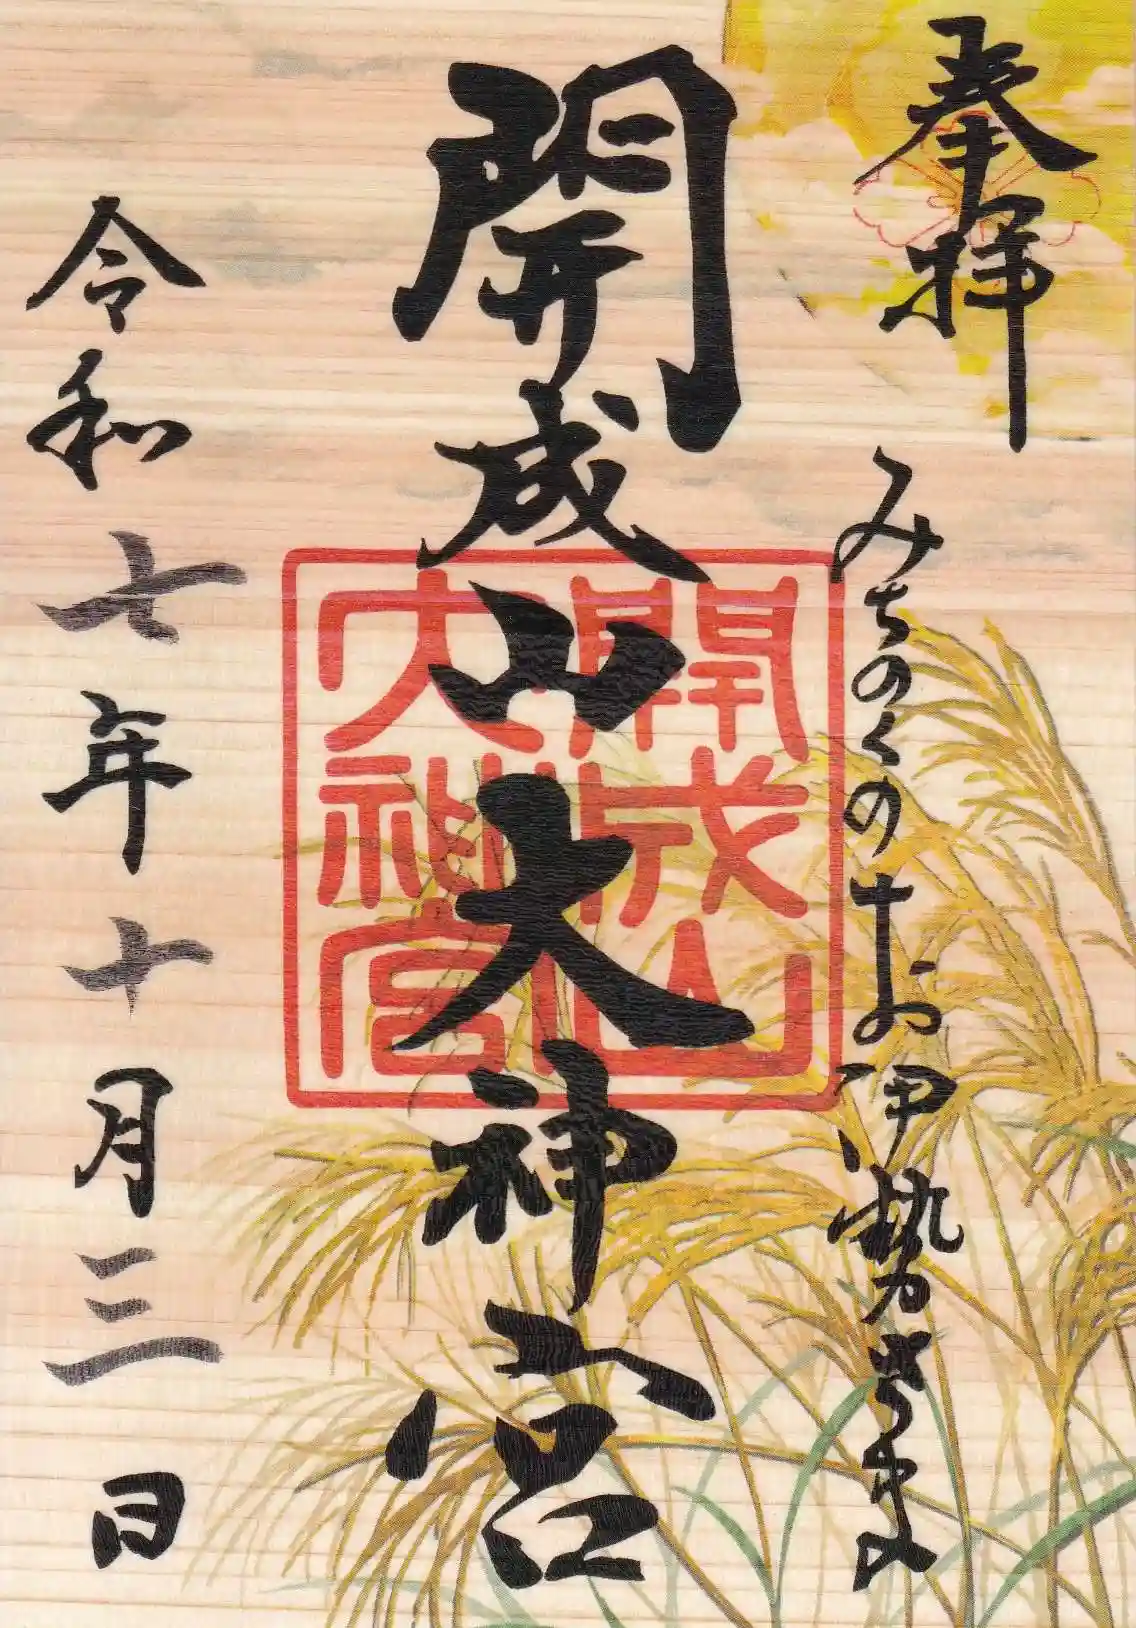 奉拝
みちのくのすお伊勢さま
開成山大神宮
開成山
大神宮
令和七年十月三日